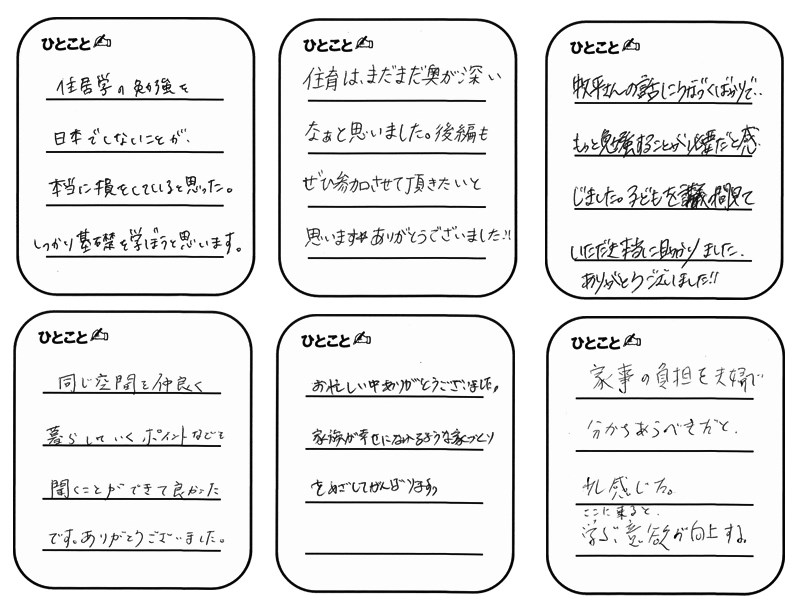 ひとこと
住居学の勉強を
日本でしないことが、
本当に損をしていると思った。
しっかり基礎を学ぼうと思います。
ひとこと
住育は、まだまだ奥が深い
なぁと思いました。後編も
ぜひ参加させて頂きたいと
思います。ありがとうございました!!
ひとこと
牧平さんの話にうなづくばかりで‥
もっと勉強することが必要だと感
じました。子どもを見て
いただき本当に助かりました。
ありがとうございました!!
ひとこと
同じ空間を仲良く
暮らしていくポイントなどを
聞くことができて良かった
です。ありがとうございました。
ひとこと
お忙しい中ありがとうございました。
家族が幸せになれるような家づくり
をめざしてがんばります。
ひとこと
家事の負担を夫婦で
分かちあうべきだと、
少し感じた。
ここに来ると、
学ぶ意欲が向上する。